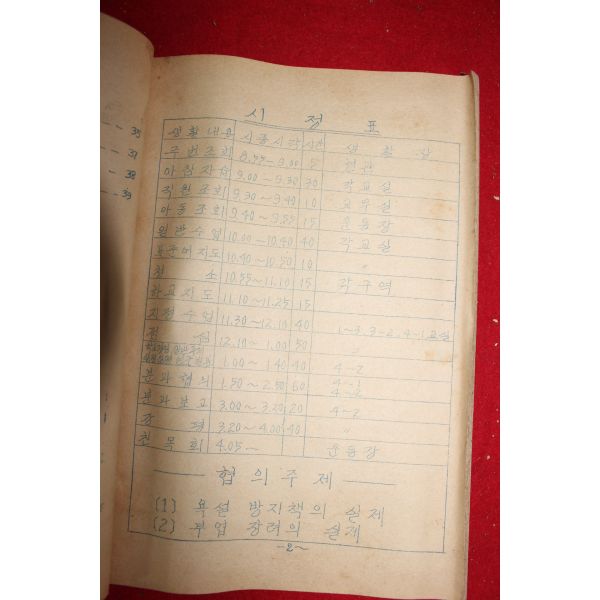 35
37
38
39
시 정 표
생활내용 시종시각 시간 생 활 장
주번조회 8.55~9.00 5 현관
아침자습 9.00~9.30 30 각교실
직원조회 9.30~9.40 10 교무실
아동조회 9.40~9.55 15 운동장
일반수업 10.00~10.40 40 각교실
표준어지도 10.40~10.50 10 〃
청 소 10.55~11.10 15 각구역
하교지도 11.10~11.25 15
지정수업 11.30~12.10 40 1~3, 3~2, 4~1교실
점 심 12.10~1.00 50 〃
1.00~1.40 40 4~2
분과협의 1.50~2.50 60 4~1 4~2
분과보고 3.00~3.20 20 4~2
강 평 3.20~4.00 40 〃
친목회 4.05~ 운동장
협의주제
(1) 욕설 방지책의 실제
(2) 부업 장려의 실제
-2~